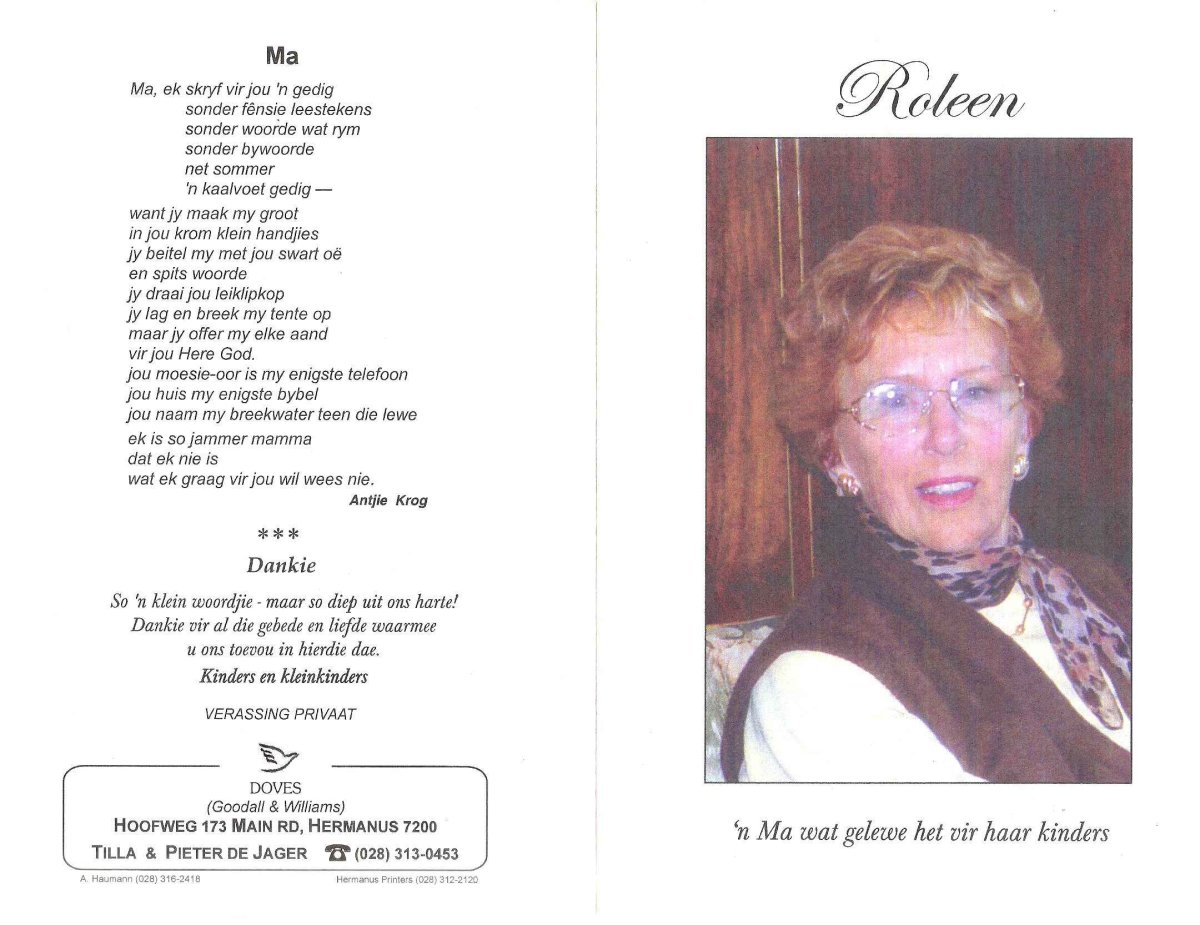 Ma
Ma, ek skryf vir jou 'n gedig
sonder fênsie leestekens
sonder woorde wat rym
sonder bywoorde
net sommer
'n kaalvoet gedig —
want jy maak my groot
in jou krom klein handjies
jy beitel my met jou swart oë
en spits woorde
jy draai jou leiklipkop
jy lag en breek my tente op
maar jy offer my elke aand
vir jou Here God.
jou moesie-oor is my enigste telefoon
jou huis my enigste bybel
jou naam my breekwater teen die lewe
ek is so jammer mamma
dat ek nie is
wat ek graag vir jou wil wees nie.
Antjie Krog
***
Dankie
So 'n klein woordjie - maar so diep uit ons harte!
Dankie vir al die gebede en liefde waarmee
u ons toevou in hierdie dae.
Kinders en kleinkinders
VERASSING PRIVAAT
DOVES
(Goodall & Williams)
HOOFWEG 173 MAIN RD, HERMANUS 7200
TILLA & PIETER DE JAGER ☎ (028) 313-0453
A. Haumann (028) 316-2418
Hermanus Printers (028) 312-2120
Roleen
'n Ma wat gelewe het vir haar kinders